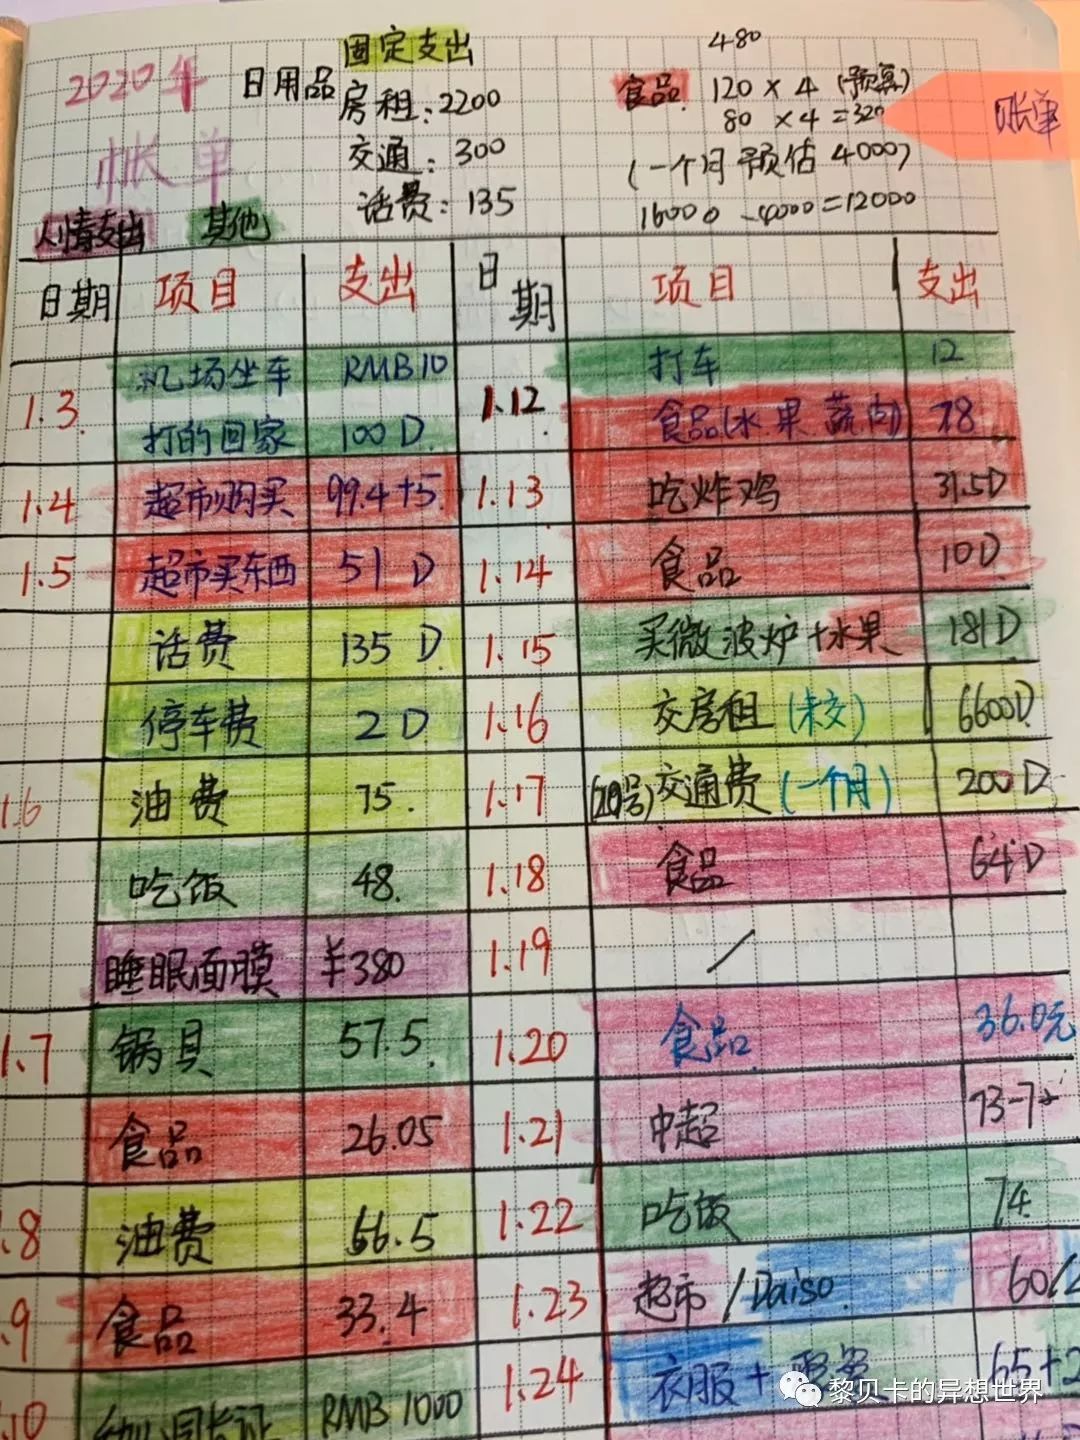 2020年
帐单
日用品
固定支出
房租:2200
交通:300
话费:135
480
食品 120×4 (预算)
80×4=320
(一个月预估 4000)
16000-4000=12000
账单
人情支出 其他
日期 项目 支出 日期 项目 支出
1.3 机场坐车 RMB10 1.12 打车 12
打的回家 100D 食品(水果蔬肉) 78
1.4 超市购买 99.4+5 1.13 吃炸鸡 31.5D
1.5 超市买东西 51D 1.14 食品 10D
话费 135D 1.15 买微波炉+水果 181D
停车费 2D 1.16 交房租(未交) 6600D
1.6 油费 75. 1.17 (20号)交通费(一个月) 200D
吃饭 48. 1.18 食品 64D
睡眠面膜 ¥380 1.19 /
1.7 锅具 57.5 1.20 食品 36.0元
食品 26.05 1.21 中超 73-7
.8 油费 66.5 1.22 吃饭 74
.9 食品 33.4 1.23 超市/Daiso 60/
.10 RMB1000 1.24 衣服+ 65+2
黎贝卡的异想世界